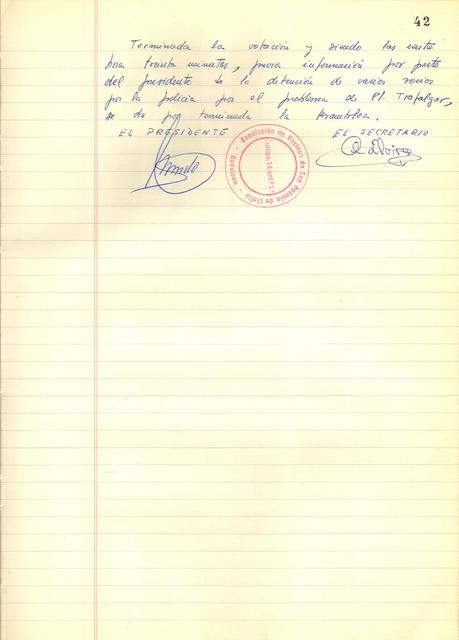 42
Terminada la votación y siendo las veinte
hora treinta minutos, previa información por parte
del presidente de la detención de varios socios
por la policía por el problema de Pl. Trafalgar,
se da por terminada la Asamblea.
EL PRESIDENTE EL SECRETARIO
Asociación de Vecinos de San Antonio de Llefià - Badalona -
Europa, 14, ent.º 1.ª